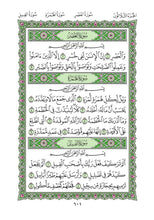 الجزء الثلاثون سورة العصر سورة الهمزة سورة الفيل
سورة العصر
بسم الله الرحمن الرحيم
والعصر ١ إن الإنسان لفي خسر ٢ إلا الذين ءامنوا وعملوا
الصالحات وتواصوا بالحق وتواصوا بالصبر ٣
سورة الهمزة
بسم الله الرحمن الرحيم
ويل لكل همزة لمزة ١ الذي جمع مالا وعدده ٢ يحسب
أن ماله أخلده ٣ كلا لينبذن في الحطمة ٤ وما أدراك
ما الحطمة ٥ نار الله الموقدة ٦ التي تطلع على
الأفئدة ٧ إنها عليهم مؤصدة ٨ في عمد ممددة ٩
سورة الفيل
بسم الله الرحمن الرحيم
ألم تر كيف فعل ربك بأصحاب الفيل ١ ألم يجعل
كيدهم في تضليل ٢ وأرسل عليهم طيرا أبابيل ٣
ترميهم بحجارة من سجيل ٤ فجعلهم كعصف مأكول ٥
٦٠١